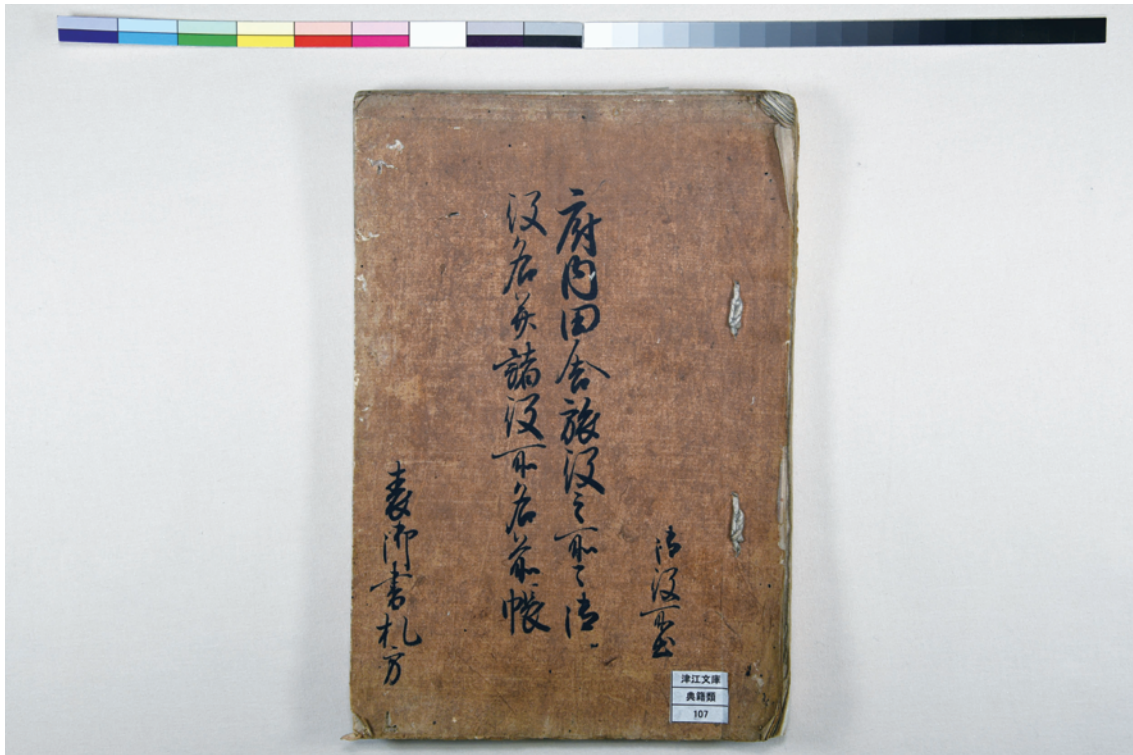 請役所出
府内田舎旅役之所々請
役名并諸役所名前帳
表御書札方
津江文庫
典籍類
107